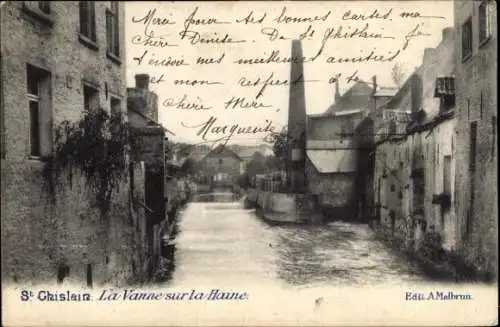 Merci pour tes bonnes cartes ma
chère Denise De St Ghislain je
t'envoie mes meilleures amitiés
et mon respect à ta
chère Mère,
Marguerite
St Ghislain. La Vanne sur la Haine.
Edit. A. Malbrun.